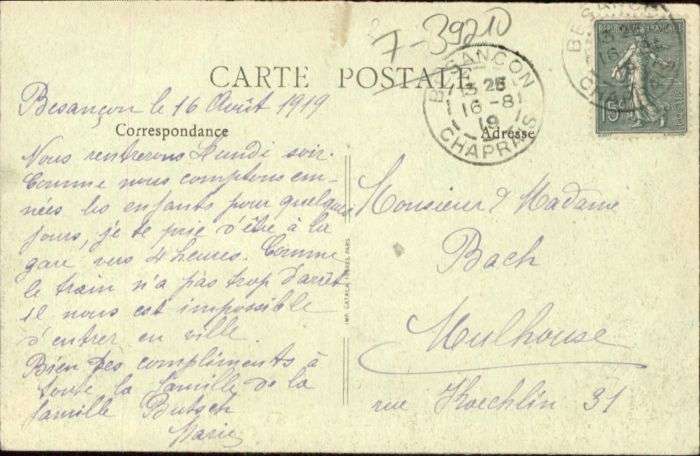 7-39210
CARTE POSTALE
Correspondance
Adresse
Besançon le 16 Août 1919
Nous rentrerons Lundi soir.
Comme nous comptons em-
nées les enfants pour quelques
jours, je te prie d'être à la
gare vers 4 heures. Comme
le train n'a pas trop d'arrêt
il nous est impossible
d'entrer en ville.
Bien des compliments à
toute la famille de la
famille Butsch
Marie
IMP. CATALA FRERES, PARIS
BESANÇON
13 25
16-8
19
CHAPRAIS
BESANÇON
15c
Monsieur & Madame
Bach
Mulhouse
rue Koechlin 31